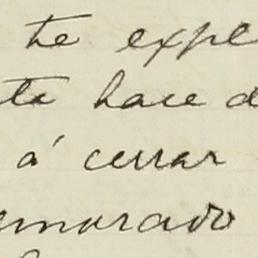 te expl
te hace d
á cerrar
emorado